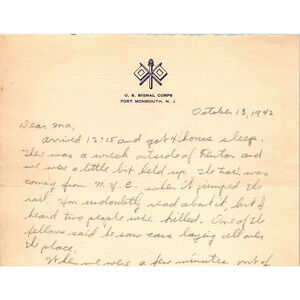 U. S. SIGNAL CORPS
FORT MONMOUTH, N. J.
October 13, 1942
Dear Ma,
Arrived 12:15 and got 4 hours sleep.
There was a wreck outside of Trenton and
we were a little bit held up. The train was
coming from N.Y.C. when it jumped the
rail. You undoubtly read about it but I
heard two people were killed. One of the
fellows said he saw cars laying all over
the place.
When we were a few minutes out of